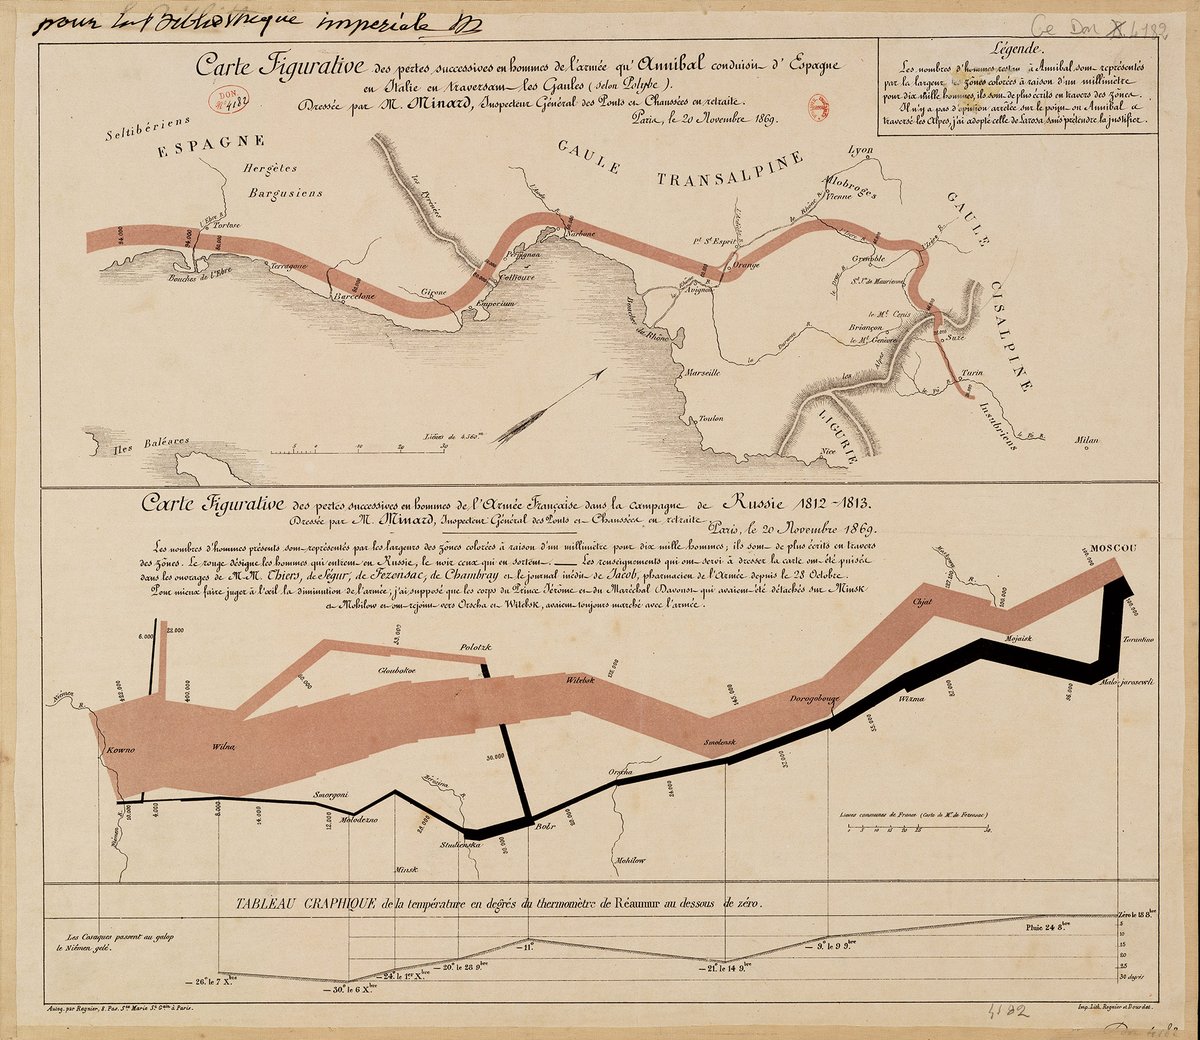 pour la Bibliothèque impériale
Don 4182
Carte Figurative des pertes successives en hommes de l'armée qu'Annibal conduisit d'Espagne
en Italie en traversant les Gaules (selon Polybe).
Dressée par M. Minard, Inspecteur Général des Ponts et Chaussées en retraite.
Paris, le 20 Novembre 1869.
DON
N° 4182
Légende.
Les nombres d'hommes restant à Annibal sont représentés
par la largeur des zônes colorées à raison d'un millimètre
pour dix mille hommes, ils sont de plus écrits en travers des zônes.
Il n'y a pas d'opinion arrêtée sur le point où Annibal a
traversé les Alpes, j'ai adopté celle de Larosa sans prétendre la justifier.
Seltibériens
ESPAGNE
Hergètes
Bargusiens
l'Ebre R.
Tortose
94.000
Bouches de l'Ebre
Terragone
Barcelone
Girone
les Pyrénées
Emporium
Collioure
Perpignan
l'Aude R.
Narbonne
GAULE TRANSALPINE
Lyon
Allobroges
Vienne
le Rhône R.
l'Ardèche R.
Pt. St. Esprit
Orange
Avignon
le Rhône
Bouches du Rhône
l'Isère R.
Grenoble
le Drac R.
St. J. de Maurienne
le Mt. Cenis
Briançon
le Mt. Genèvre
la Durance R.
les Alpes
Suze
Turin
le Pô R.
Insubriens
le Pô R.
Milan
GAULE CISALPINE
LIGURIE
Nice
Marseille
Toulon
Iles Baléares
Lieues de 4.360m
5 10 20 30
Carte Figurative des pertes successives en hommes de l'Armée Française dans la campagne de Russie 1812-1813.
Dressée par M. Minard, Inspecteur Général des Ponts et Chaussées en retraite.
Paris, le 20 Novembre 1869.
Les nombres d'hommes présents sont représentés par les largeurs des zônes colorées à raison d'un millimètre pour dix mille hommes; ils sont de plus écrits en travers
des zônes. Le rouge désigne les hommes qui entrent en Russie, le noir ceux qui en sortent. — Les renseignements qui ont servi à dresser la carte ont été puisés
dans les ouvrages de M.M. Thiers, de Ségur, de Fezensac, de Chambray et le journal inédit de Jacob, pharmacien de l'Armée depuis le 28 Octobre.
Pour mieux faire juger à l'œil la diminution de l'armée, j'ai supposé que les corps du Prince Jérôme et du Maréchal Davoust qui avaient été détachés sur Minsk
et Mohilow et ont rejoint vers Orscha et Witebsk, avaient toujours marché avec l'armée.
MOSCOU
100.000
100.000
Moskowa R.
127.100
100.000
Chjat
Mojaisk
Tarantino
Malo-jarosewli
6.000
22.000
33.000
Polotzk
Gloubokoe
60.000
Niémen R.
422.000
400.000
175.000
Witebsk
145.000
Dorogobouge
Wizma
55.000
Smolensk
Kowno
Wilna
37.000
30.000
Orscha
24.000
Bérézina R.
Smorgoni
10.000
4.000
8.000
14.000
12.000
Molodezno
28.000
20.000
Bobr
Studienska
Niémen R.
Minsk
Mohilow
Lieues communes de France (Carte de Mr. de Fezensac)
1 5 10 15 20 25 50
TABLEAU GRAPHIQUE de la température en degrés du thermomètre de Réaumur au dessous de zéro.
Les Cosaques passent au galop
le Niémen gelé.
Zéro le 18 8bre
5
10
15
20
25
30 degrés
Pluie 24 8bre
— 9° le 9 9bre
— 21° le 14 9bre
— 11°
— 20° le 28 9bre
— 24° le 1er Xbre
— 30° le 6 Xbre
— 26° le 7 Xbre
Autog. par Regnier, 8. Pas. Ste Marie St Gain à Paris.
Imp. Lith. Regnier et Dourdet.
4182
Don 4182